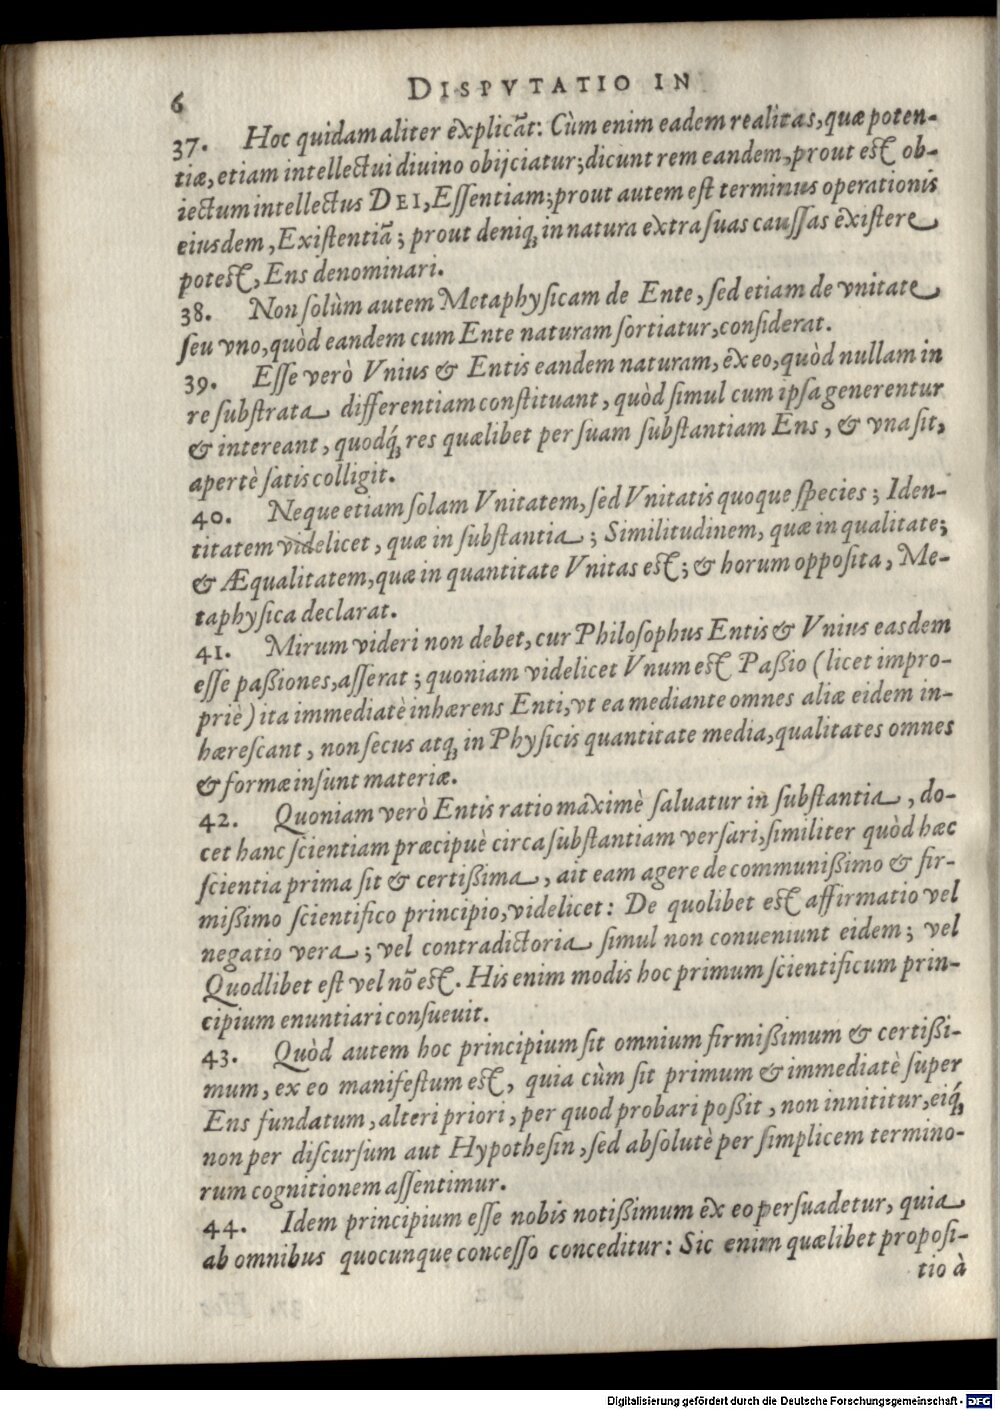 6
DISPVTATIO IN
37. Hoc quidam aliter explicāt: Cùm enim eadem realitas, quæ poten-
tiæ, etiam intellectui diuino obijciatur; dicunt rem eandem, prout est ob-
iectum intellectus DEI, Essentiam; prout autem est terminus operationis
eiusdem, Existentiā; prout deniq; in natura extra suas caussas existere
potest, Ens denominari.
38. Non solùm autem Metaphysicam de Ente, sed etiam de vnitate
seu vno, quòd eandem cum Ente naturam sortiatur, considerat.
39. Esse verò Vnius & Entis eandem naturam, ex eo, quòd nullam in
re substrata differentiam constituant, quòd simul cum ipsa generentur
& intereant, quodq́; res quælibet per suam substantiam Ens, & vna sit,
apertè satis colligit.
40. Neque etiam solam Vnitatem, sed Vnitatis quoque species; Iden-
titatem videlicet, quæ in substantia; Similitudinem, quæ in qualitate;
& Æqualitatem, quæ in quantitate Vnitas est; & horum opposita, Me-
taphysica declarat.
41. Mirum videri non debet, cur Philosophus Entis & Vnius easdem
esse paßiones, asserat; quoniam videlicet Vnum est Paßio (licet impro-
priè) ita immediatè inhærens Enti, vt ea mediante omnes aliæ eidem in-
hærescant, non secus atq; in Physicis quantitate media, qualitates omnes
& formæ insunt materiæ.
42. Quoniam verò Entis ratio maximè saluatur in substantia, do-
cet hanc scientiam præcipuè circa substantiam versari, similiter quòd hæc
scientia prima sit & certißima, ait eam agere de communißimo & fir-
mißimo scientifico principio, videlicet: De quolibet est affirmatio vel
negatio vera; vel contradictoria simul non conueniunt eidem; vel
Quodlibet est vel nō est. His enim modis hoc primum scientificum prin-
cipium enuntiari consueuit.
43. Quòd autem hoc principium sit omnium firmißimum & certißi-
mum, ex eo manifestum est, quia cùm sit primum & immediatè super
Ens fundatum, alteri priori, per quod probari poßit, non innititur, eiq́;
non per discursum aut Hypothesin, sed absolutè per simplicem termino-
rum cognitionem assentimur.
44. Idem principium esse nobis notißimum ex eo persuadetur, quia
ab omnibus quocunque concesso conceditur: Sic enim quælibet proposi-
tio à
Digitalisierung gefördert durch die Deutsche Forschungsgemeinschaft - DFG